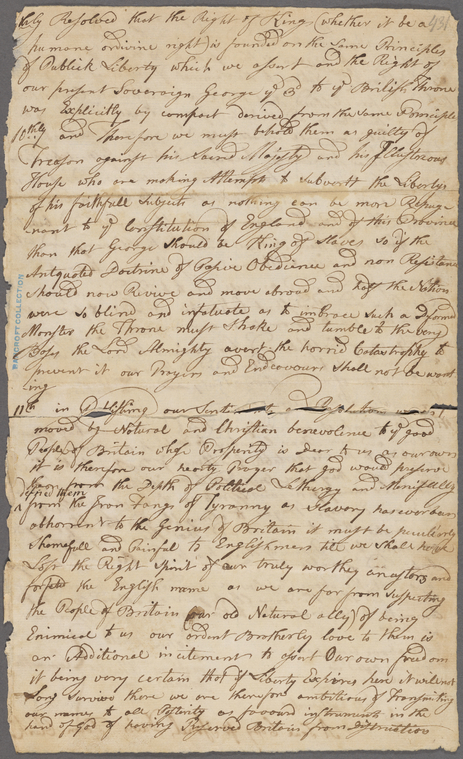 Resolved that the Right of Kings (whether it be a 431
humane or divine right) is founded on the Same Principles
of Publick Liberty which we assert and the Right of
our present Sovereign George ye 3d to ye British Throne
was Explicitly by compact derived from the Same Principle
10thly and Therefore we must behold them as guilty of
Treason against his Sacred Majesty and his Illustrious
House who are making Attempts to Subvertt the Libertys
of his faithfull Subjects as nothing can be more Repug
nant to ye Constitution of England and of this Province
than that George should be King of Slaves So if the
Antquated Doctrine of Pasive Obedience and non Resistance
Should now Revive and move abroad and half the Nation
were so blind and infatuate as to imbrace Such a Deformed
Monster the Throne must Shake and tumble to the very
Basis the Lord Almighty avert the horrid Catastrophy to
prevent it our Prayers and Endeavours Shall not be want
ing
BANCROFT COLLECTION
11th in our Sentiments &
moved by Natural and Christian benevolence to ye good
People of Britain whose Prosperity is Dear to us as our own
it is therefore our hearty Prayer that god would preserve
them from the Depth of Political Lethergy and
defend them
from the Iron Fangs of Tyranny as Slavery has ever been
abhorent to the Genius of Britain it must be peculiarly
Shamefull and Painful to Englishmen till we Shall have
Lost the Right Spirit of our truly worthey ancestors and
forfeted the English name as we are far from Suspecting
the People of Britain (our old Natural ally) of being
Enimical to us our ardent Brotherly love to them is
an Additional incitement to assert Our own freedom
it being very certain that if Liberty Expires here it will not
Long Survive there we are therefore ambitious of Transmiting
our name to all Posterity as instruments in the
hand of God of having Preserved Britain from distruction